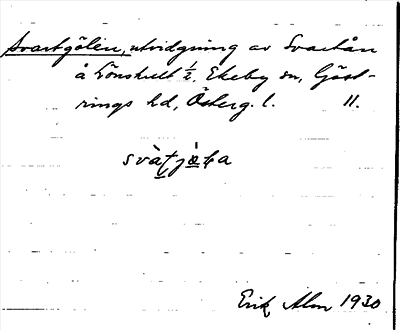 Svartgölen, utvidgning av Svartån
å Lönshult ½, Ekeby sn, Göst-
rings hd, Österg. l. 11.
Erik Alm 1930